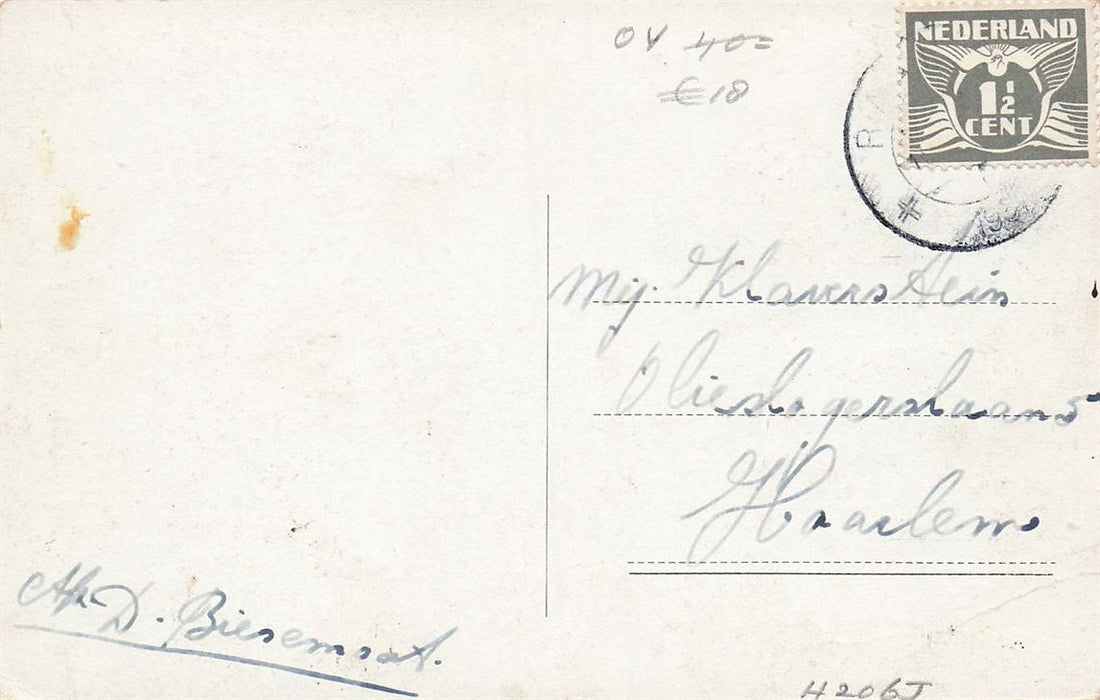 OV 40=
€18
NEDERLAND
1½
CENT
RA
Mej. Klaverstein
Olieslagerslaan 5
Haarlem.
Afz. D. Biesemaat.
4206J